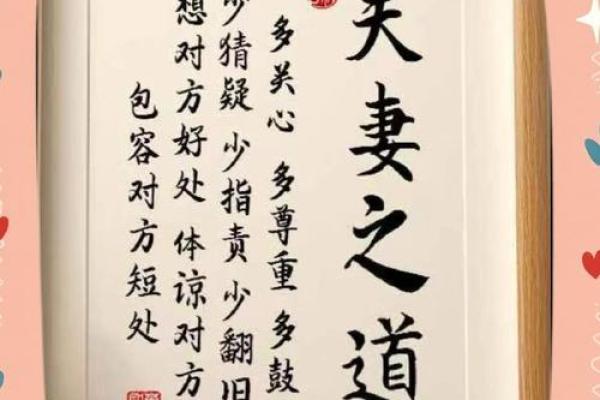 夫妻之道
多关心 多尊重 多鼓
少猜疑 少指责 少翻旧
想对方好处 体谅对方
包容对方短处